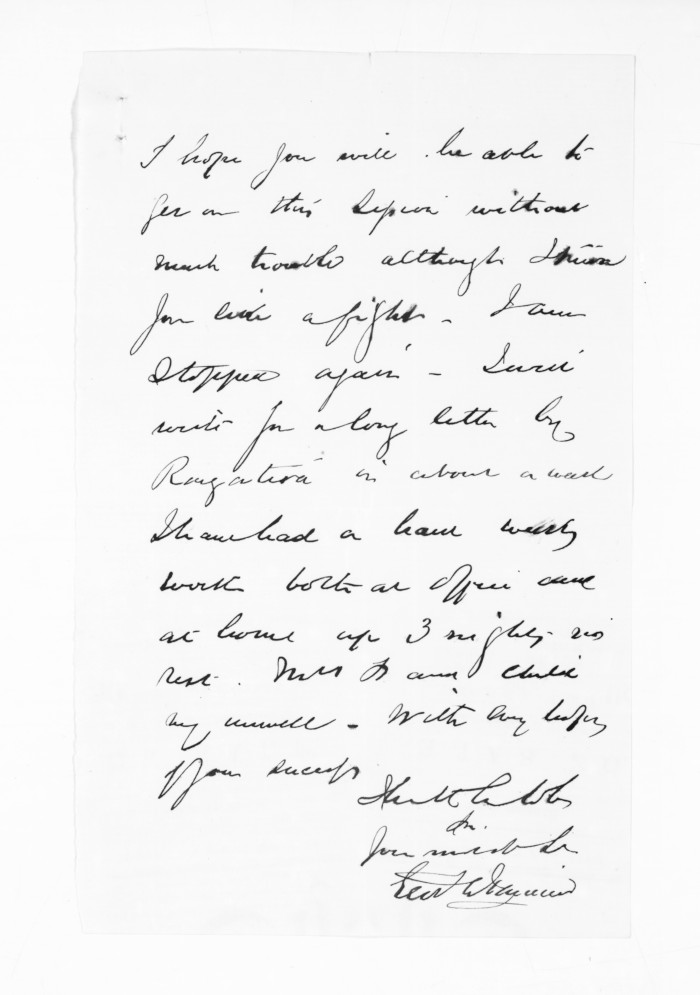 I hope you will be able to
get on this Session without
much trouble although I know
you like a fight - I am
stopped again - I will
write you a long letter by
Rangatira in about a week
I have had a hard weeks
work both at office and
at home up 3 nights no
rest. Mrs and child
very unwell - With every hope
of your success
I
your